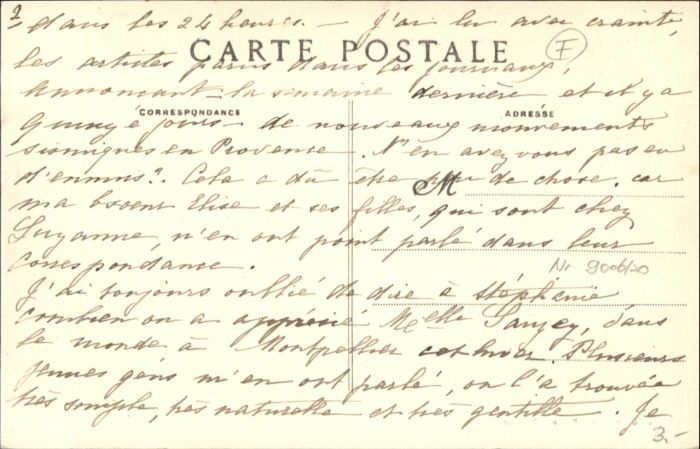 2, dans les 24 heures. — J'ai lu avec crainte,
CARTE POSTALE
F
les articles parus dans les journaux,
annonçant la semaine dernière et il y a
CORRESPONDANCE
ADRESSE
quinze jours de nouveaux mouvements
sismiques en Provence. N'en avez vous pas eu
d'ennuis? Cela a dû être peu de chose, car
M
ma soeur Elise et ses filles, qui sont chez
Suzanne, n'en ont point parlé dans leur
correspondance.
Nr 9006/20
J'ai toujours oublié de dire à Stéphanie
combien on a apprécié Melle, dans
le monde à Montpellier cet hiver. Plusieurs
jeunes gens m'en ont parlé, on l'a trouvée
très simple, très naturelle et très gentille. Je
3.-